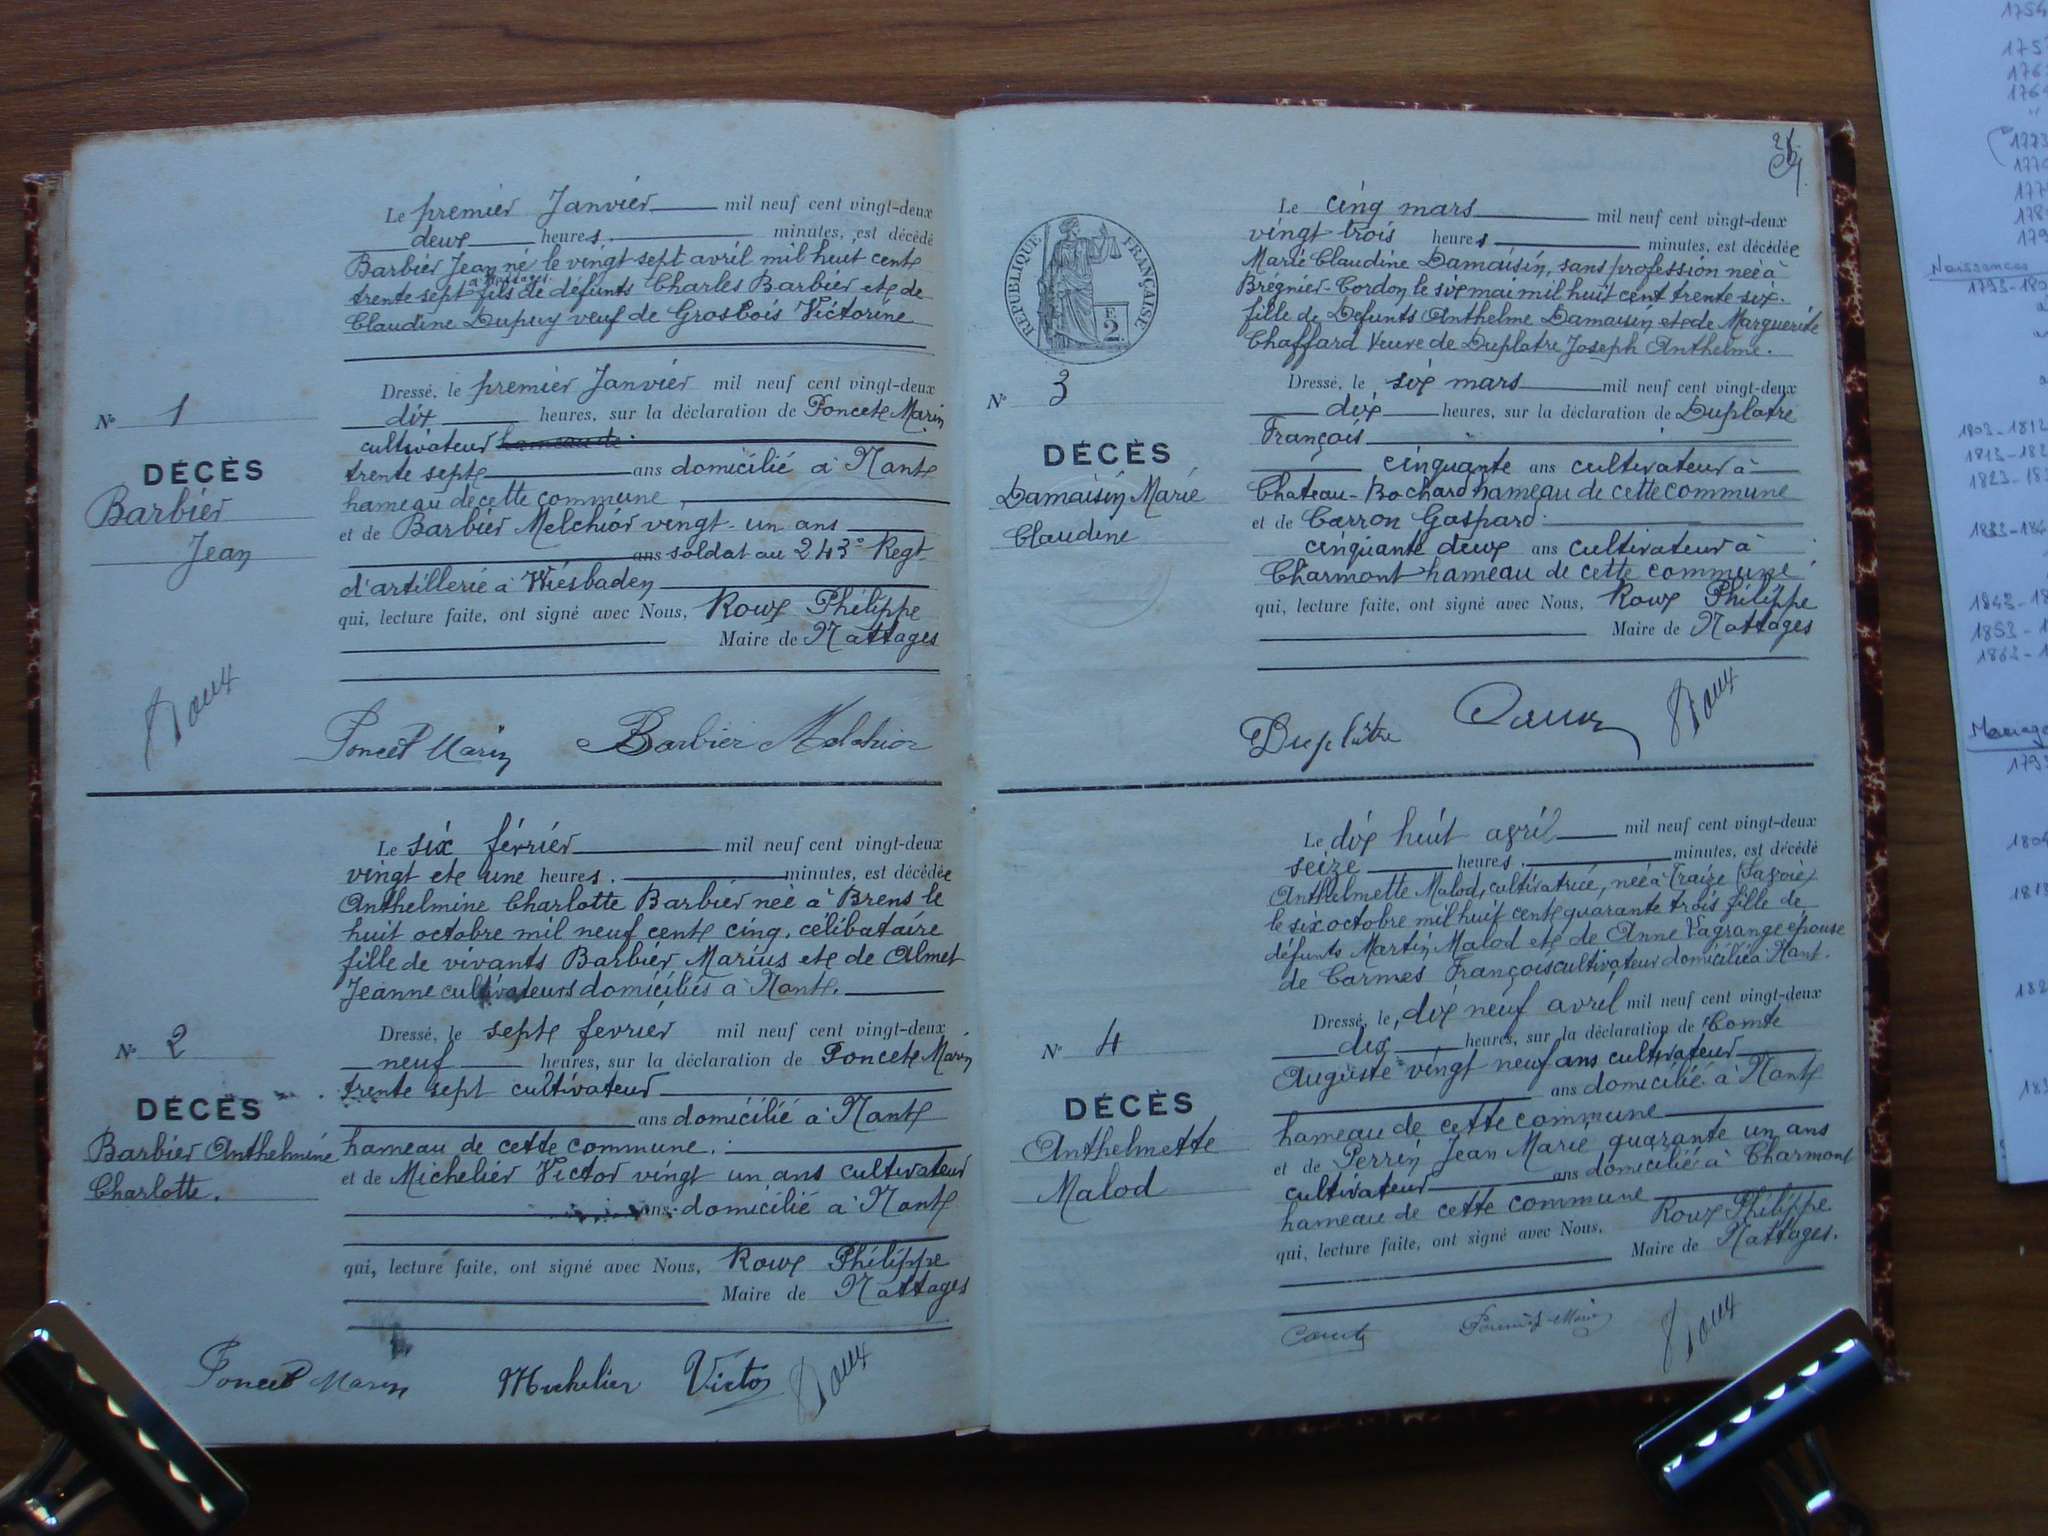 Le premier Janvier mil neuf cent vingt-deux
deux heures minutes, est décédé
Barbier Jean né le vingt sept avril mil huit cent
à Nattages
trente sept fils de défunts Charles Barbier et de
Claudine Dupuy veuf de Grosbois Victorine
Dressé, le premier Janvier mil neuf cent vingt-deux
dix heures, sur la déclaration de Poncet Marin
cultivateur hameau de
trente sept ans domicilié à Nant
hameau de cette commune,
et de Barbier Melchior vingt-un ans
ans soldat au 243° Regt
d'artillerie à Wiesbaden
qui, lecture faite, ont signé avec Nous, Roux Philippe
Maire de Nattages
N° 1
DÉCÈS
Barbier
Jean
Roux
Poncet Marin Barbier Melchior
Le six février mil neuf cent vingt-deux
vingt et une heures. minutes, est décédée
Anthelmine Charlotte Barbier née à Brens le
huit octobre mil neuf cent cinq, célibataire
fille de vivants Barbier Marius et de Almet
Jeanne cultivateurs domiciliés à Nant.
Dressé, le sept fevrier mil neuf cent vingt-deux
neuf heures, sur la déclaration de Poncet Marin
trente sept cultivateur
ans domicilié à Nant
hameau de cette commune.
et de Michelier Victor vingt un ans cultivateur
ans domicilié à Nant
qui, lecture faite, ont signé avec Nous, Roux Philippe
Maire de Nattages
N° 2
DÉCÈS
Barbier Anthelmine
Charlotte.
Poncet Marin Michelier Victor Roux
RÉPUBLIQUE FRANÇAISE
E
2
Le cinq mars mil neuf cent vingt-deux
vingt trois heures minutes, est décédée
Marie Claudine Damaisin, sans profession née à
Brégnier-Cordon le six mai mil huit cent trente-six.
fille de Défunts Anthelme Damaisin et de Marguerite
Chaffard Veuve de Duplatre Joseph Anthelme.
Dressé, le six mars mil neuf cent vingt-deux
dix heures, sur la déclaration de Duplatre
François
cinquante ans cultivateur à
Chateau-Bochard hameau de cette commune
et de Carron Gaspard
cinquante deux ans cultivateur à
Charmont hameau de cette commune
qui, lecture faite, ont signé avec Nous, Roux Philippe
Maire de Nattages
N° 3
DÉCÈS
Damaisin Marie
Claudine
Duplâtre Roux
Le dix huit avril mil neuf cent vingt-deux
seize heures. minutes, est décédé
Anthelmette Malod, cultivatrice, née à Traize (Savoie)
le six octobre mil huit cent quarante trois fille de
défunts Martin Malod et de Anne Lagrange épouse
de Carmes François cultivateur domicilié à Nant.
Dressé, le dix neuf avril mil neuf cent vingt-deux
dix heures, sur la déclaration de Comte
Auguste vingt neuf ans cultivateur
ans domicilié à Nant
hameau de cette commune
et de Perrin Jean Marie quarante un ans
cultivateur ans domicilié à Charmont
hameau de cette commune
qui, lecture faite, ont signé avec Nous, Roux Philippe
Maire de Nattages.
N° 4
DÉCÈS
Anthelmette
Malod
Roux
Naissances
1803-1812